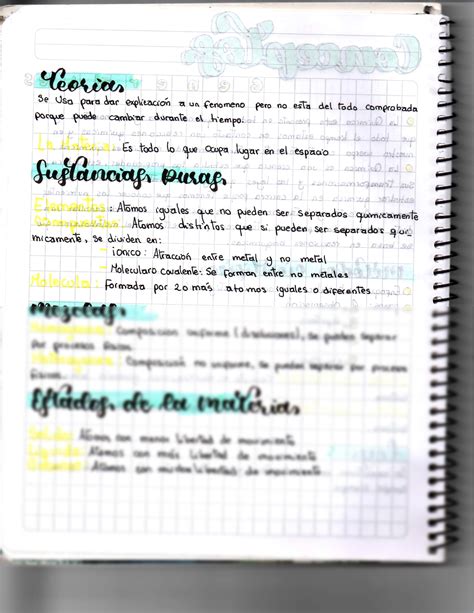 Conceptos
Teoria
Se Usa para dar explicación a un fenomeno pero no esta del todo comprobada
porque puede cambiar durante el tiempo.
La Materia: Es todo lo que ocupa lugar en el espacio
Sustancias Puras
Elementos: Atomos iguales que no pueden ser separados quimicamente
Atomos distintos que si pueden ser separados qui
micamente, se dividen en:
- ionico: Atracción entre metal y no metal
- Molecular o covalente: Se forman entre no metales
Molecula: Formada por 2 o más atomos iguales o diferentes
Mezclas
Composicion uniforme (disoluciones), se pueden separar
por procesos fisicos.
Composición no uniforme, se pueden separar por procesos
fisicos.
Estados de la materia
Solido: Atomos con menor libertad de movimiento
Liquido: Atomos con más libertad de movimiento
Atomos con mucha libertad de movimiento